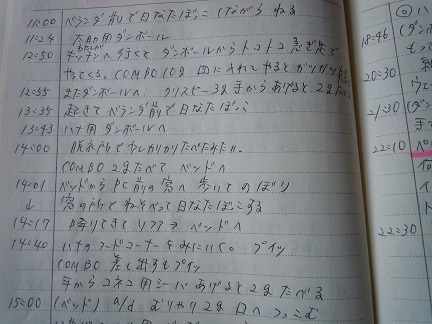 11:00 ベランダ前で日なたぼっこしながら ねる
11:24 太助用ダンボール
12:50 キッチンへ行くと ダンボールからトコトコ 急ぎ足で
やってくる。COMBO 10g 皿に入れてやるとガツガツ
12:55 またダンボールへ クリスピー3g 手からあげると 2g たべ
13:35 起きてベランダ前で日なたぼっこ
13:43 ハナ用ダンボールへ
14:00 脱衣所で少しカリカリたべたみたい。
COMBO 2g たべて ベッドへ
14:01 ベッドから PC前の窓へ 歩いてのぼり
↓ 窓の所で ねそべって日なたぼっこする
14:17 降りてきて ソファ ベッドへ
14:40 ハナのフードコーナーをみにいく。 プイッ
COMBO 差し出るもプイッ
手からコネコ用シーバ あげると 2g たべる
15:00 (ベッド) a/d むりやり 2g 口へ つっこむ
18:46
20:30
21:30
22:10
22:30